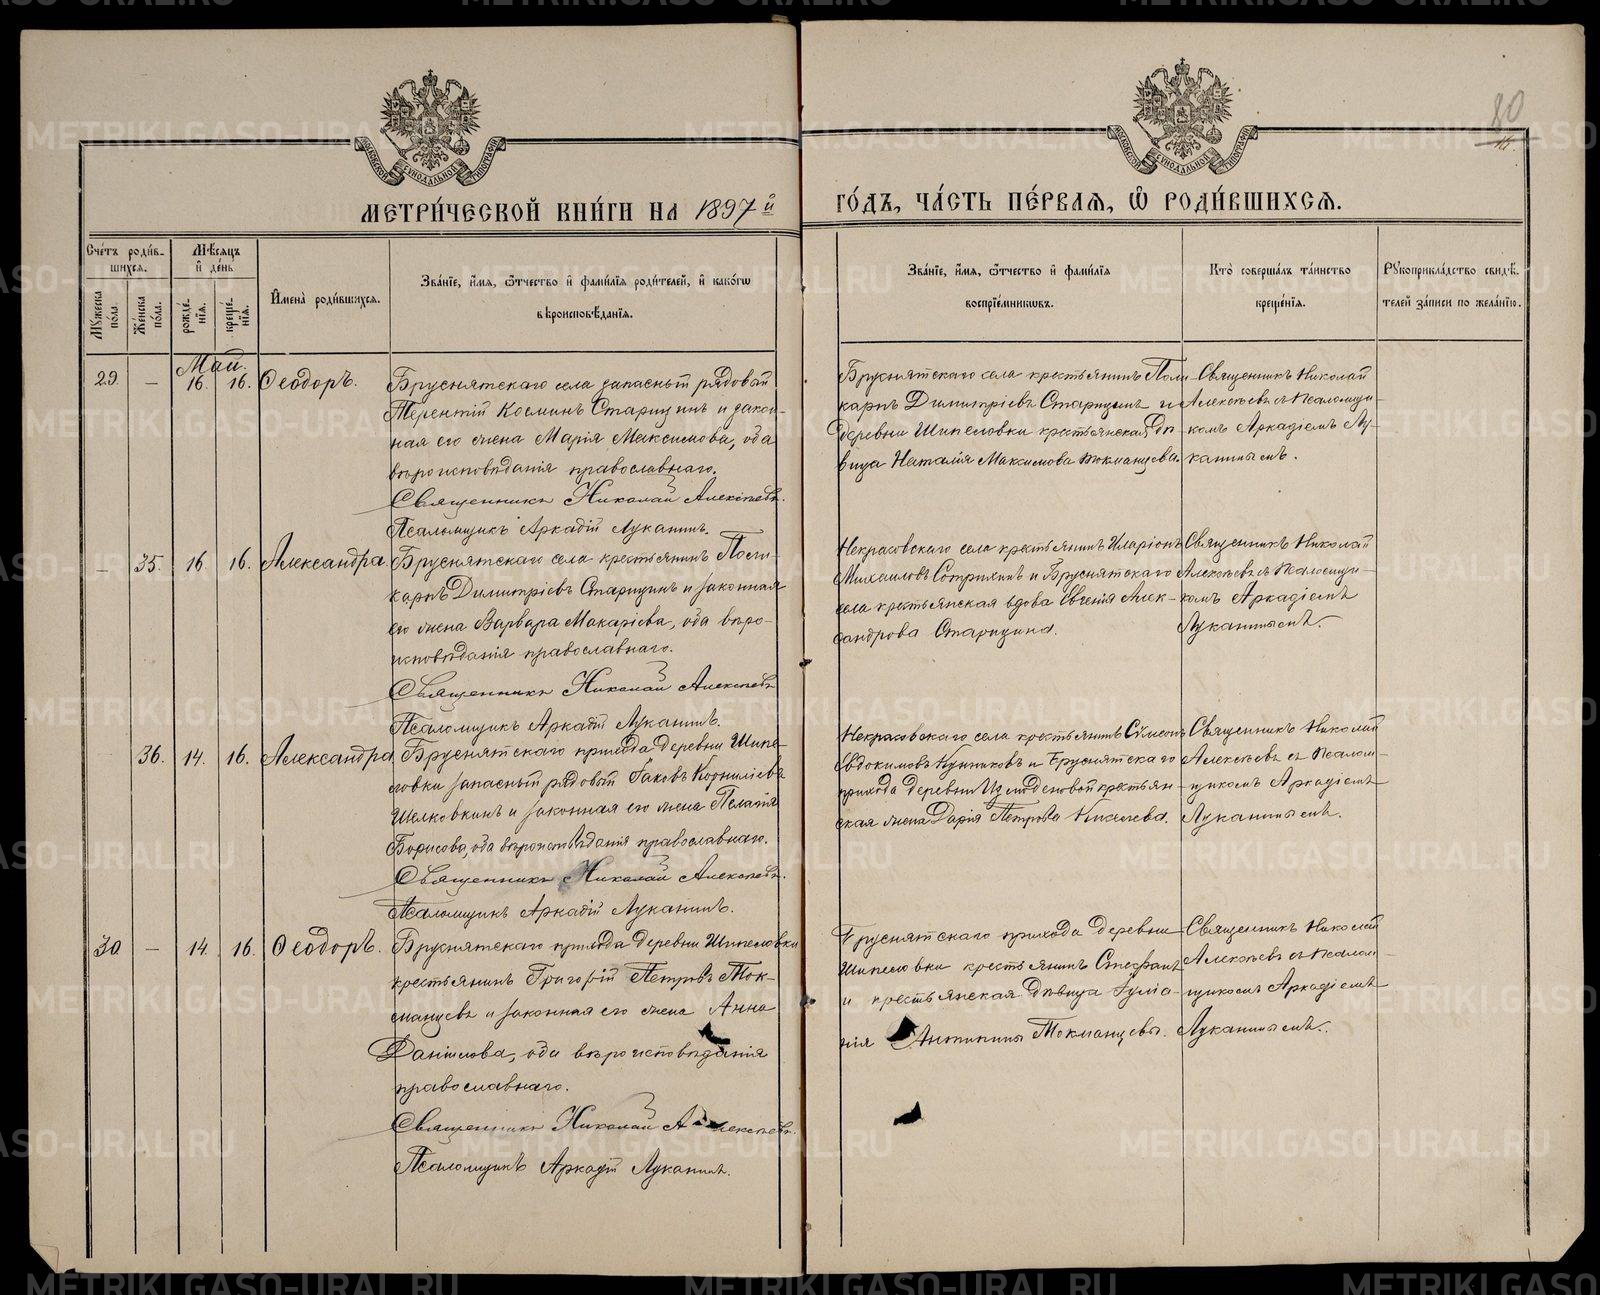 МЕТРИ́ЧЕСКОЙ КНИ́ГИ НА 1897й
ГО́ДЪ, ЧА́СТЬ ПЕ́РВАЯ, Ѡ҆ РОДИ́ВШИХСЯ.
80
Сче́тъ роди́в-
шихся.
Мѣ́сяцъ
и҆ де́нь
Му́жеска по́ла.
Же́нска по́ла.
рожде́-
нїя.
креще́-
нїя.
И҆мена̀ роди́вшихся.
Зва́нїе, и҆́мя, ѻ҆́тчество и҆ фами́лїя роди́телей, и҆ како́гѡ
вѣроисповѣ́данїя.
Зва́нїе, и҆́мя, ѻ҆́тчество и҆ фами́лїя
воспрїе́мникѡвъ.
Кто̀ соверша́лъ та́инство
креще́нїя.
Рꙋкоприкла́дство свидѣ́-
телей за́писи по жела́нїю.
Май.
29. — 16. 16. Ѳеодоръ.
Бруснятскаго села запасный рядовый
Терентій Косминъ Старицинъ и закон-
ная его жена Марія Максимова, оба
вѣроисповѣданія православнаго.
Священникъ Николай Алексѣевъ.
Псаломщикъ Аркадій Луканинъ.
Бруснятскаго села крестьянинъ Поли-
карпъ Димитріевъ Старицинъ и
деревни Шипеловки крестьянская дѣ-
вица Наталія Максимова Токманцева.
Священникъ Николай
Алексѣевъ съ псаломщи-
комъ Аркадіемъ Лу-
канинымъ.
— 35. 16. 16. Александра.
Бруснятскаго села крестьянинъ Поли-
карпъ Димитріевъ Старицинъ и законная
его жена Варвара Макаріева, оба вѣро-
исповѣданія православнаго.
Священникъ Николай Алексѣевъ
Псаломщикъ Аркадій Луканинъ.
Некрасовскаго села крестьянинъ Иларіонъ
Михаиловъ и Бруснятскаго
села крестьянская вдова Евгенія Алек-
сандрова Старицина.
Священникъ Николай
Алексѣевъ съ псаломщи-
комъ Аркадіемъ
Луканинымъ.
36. 14. 16. Александра
Бруснятскаго прихода деревни Шипе-
ловки запасный рядовый Іаковъ Корниліевъ
Шелковкинъ и законная его жена Пелагія
Борисова, оба вѣроисповѣданія православнаго.
Священникъ Николай Алексѣевъ.
Псаломщикъ Аркадій Луканинъ.
Некрасовскаго села крестьянинъ Сѵмеонъ
Евдокимовъ и Бруснятскаго
прихода деревни крестьян-
ская жена Дарія Петрова
Священникъ Николай
Алексѣевъ съ псалом-
щикомъ Аркадіемъ
Луканинымъ.
30 — 14. 16. Ѳеодоръ.
Бруснятскаго прихода деревни Шипеловки
крестьянинъ Григорій Петровъ Ток-
манцевъ и законная его жена Анна
Даніилова, оба вѣроисповѣданія
православнаго.
Священникъ Николай Алексѣевъ.
Псаломщикъ Аркадій Луканинъ.
Бруснятскаго прихода деревни
Шипеловки крестьянинъ Стефанъ
и крестьянская дѣвица Іуліа-
нія Антипины Токманцевы.
Священникъ Николай
Алексѣевъ съ псалом-
щикомъ Аркадіемъ
Луканинымъ.
METRIKI.GASO-URAL.RU